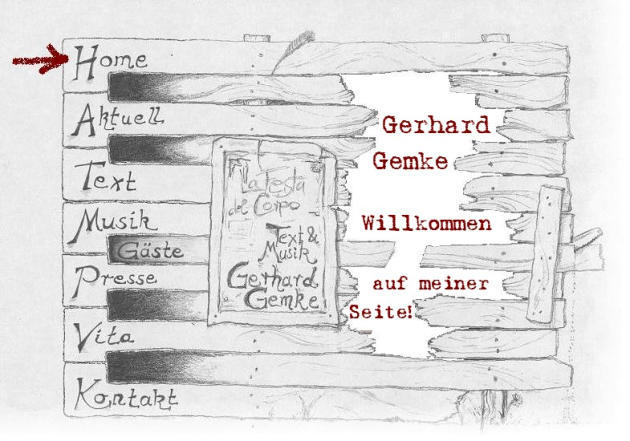 Home
Aktuell
Text
Musik
Gäste
Presse
Vita
Kontakt
La Festa
del Corpo
Text &
Musik
Gerhard
Gemke
Gerhard
Gemke
Willkommen
auf meiner
Seite!